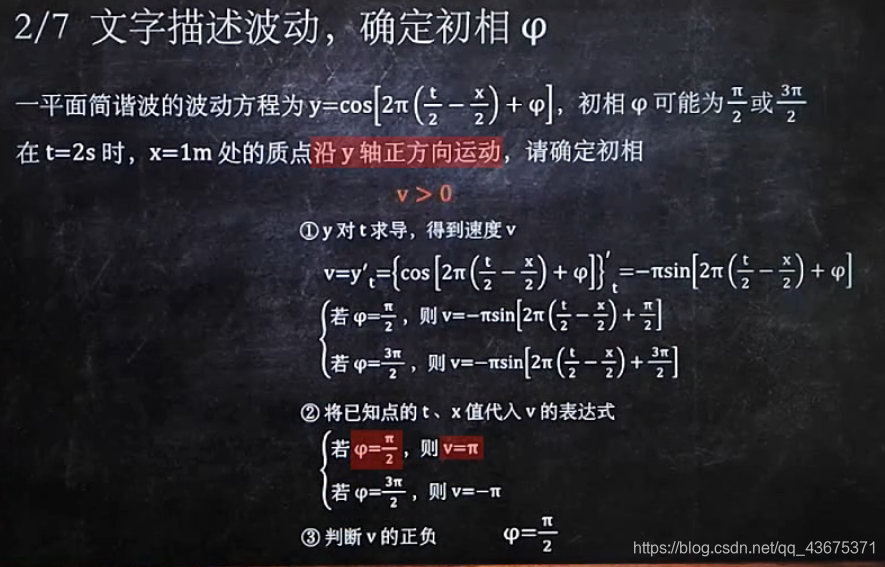 2/7 文字描述波动，确定初相 φ
一平面简谐波的波动方程为 y=cos[2π(t/2 − x/2) + φ]，初相 φ 可能为 π/2 或 3π/2
在 t=2s 时，x=1m 处的质点沿 y 轴正方向运动，请确定初相
v > 0
① y 对 t 求导，得到速度 v
v=y′ₜ={cos[2π(t/2 − x/2) + φ]}′ₜ=−πsin[2π(t/2 − x/2) + φ]
若 φ=π/2，则 v=−πsin[2π(t/2 − x/2) + π/2]
若 φ=3π/2，则 v=−πsin[2π(t/2 − x/2) + 3π/2]
② 将已知点的 t、x 值代入 v 的表达式
若 φ=π/2，则 v=π
若 φ=3π/2，则 v=−π
③ 判断 v 的正负 φ=π/2
https://blog.csdn.net/qq_43675371